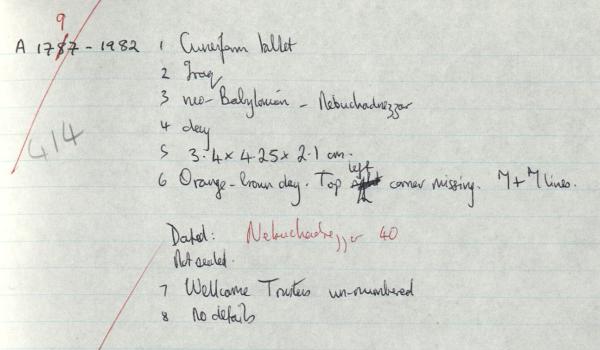 9
A 1787 - 1982 1 Cuneiform tablet
2 Iraq
3 neo-Babylonian - Nebuchadnezzar
4 clay
414
5 3.4 x 4.25 x 2.1 cm.
left
6 Orange-brown clay. Top corner missing. 7 + 7 lines.
Dated: Nebuchadnezzar 40
Not sealed.
7 Wellcome Trustees un-numbered
8 no details